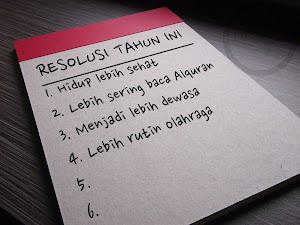 RESOLUSI TAHUN INI
1. Hidup lebih sehat
2. Lebih sering baca Alquran
3. Menjadi lebih dewasa
4. Lebih rutin olahraga
5.
6.